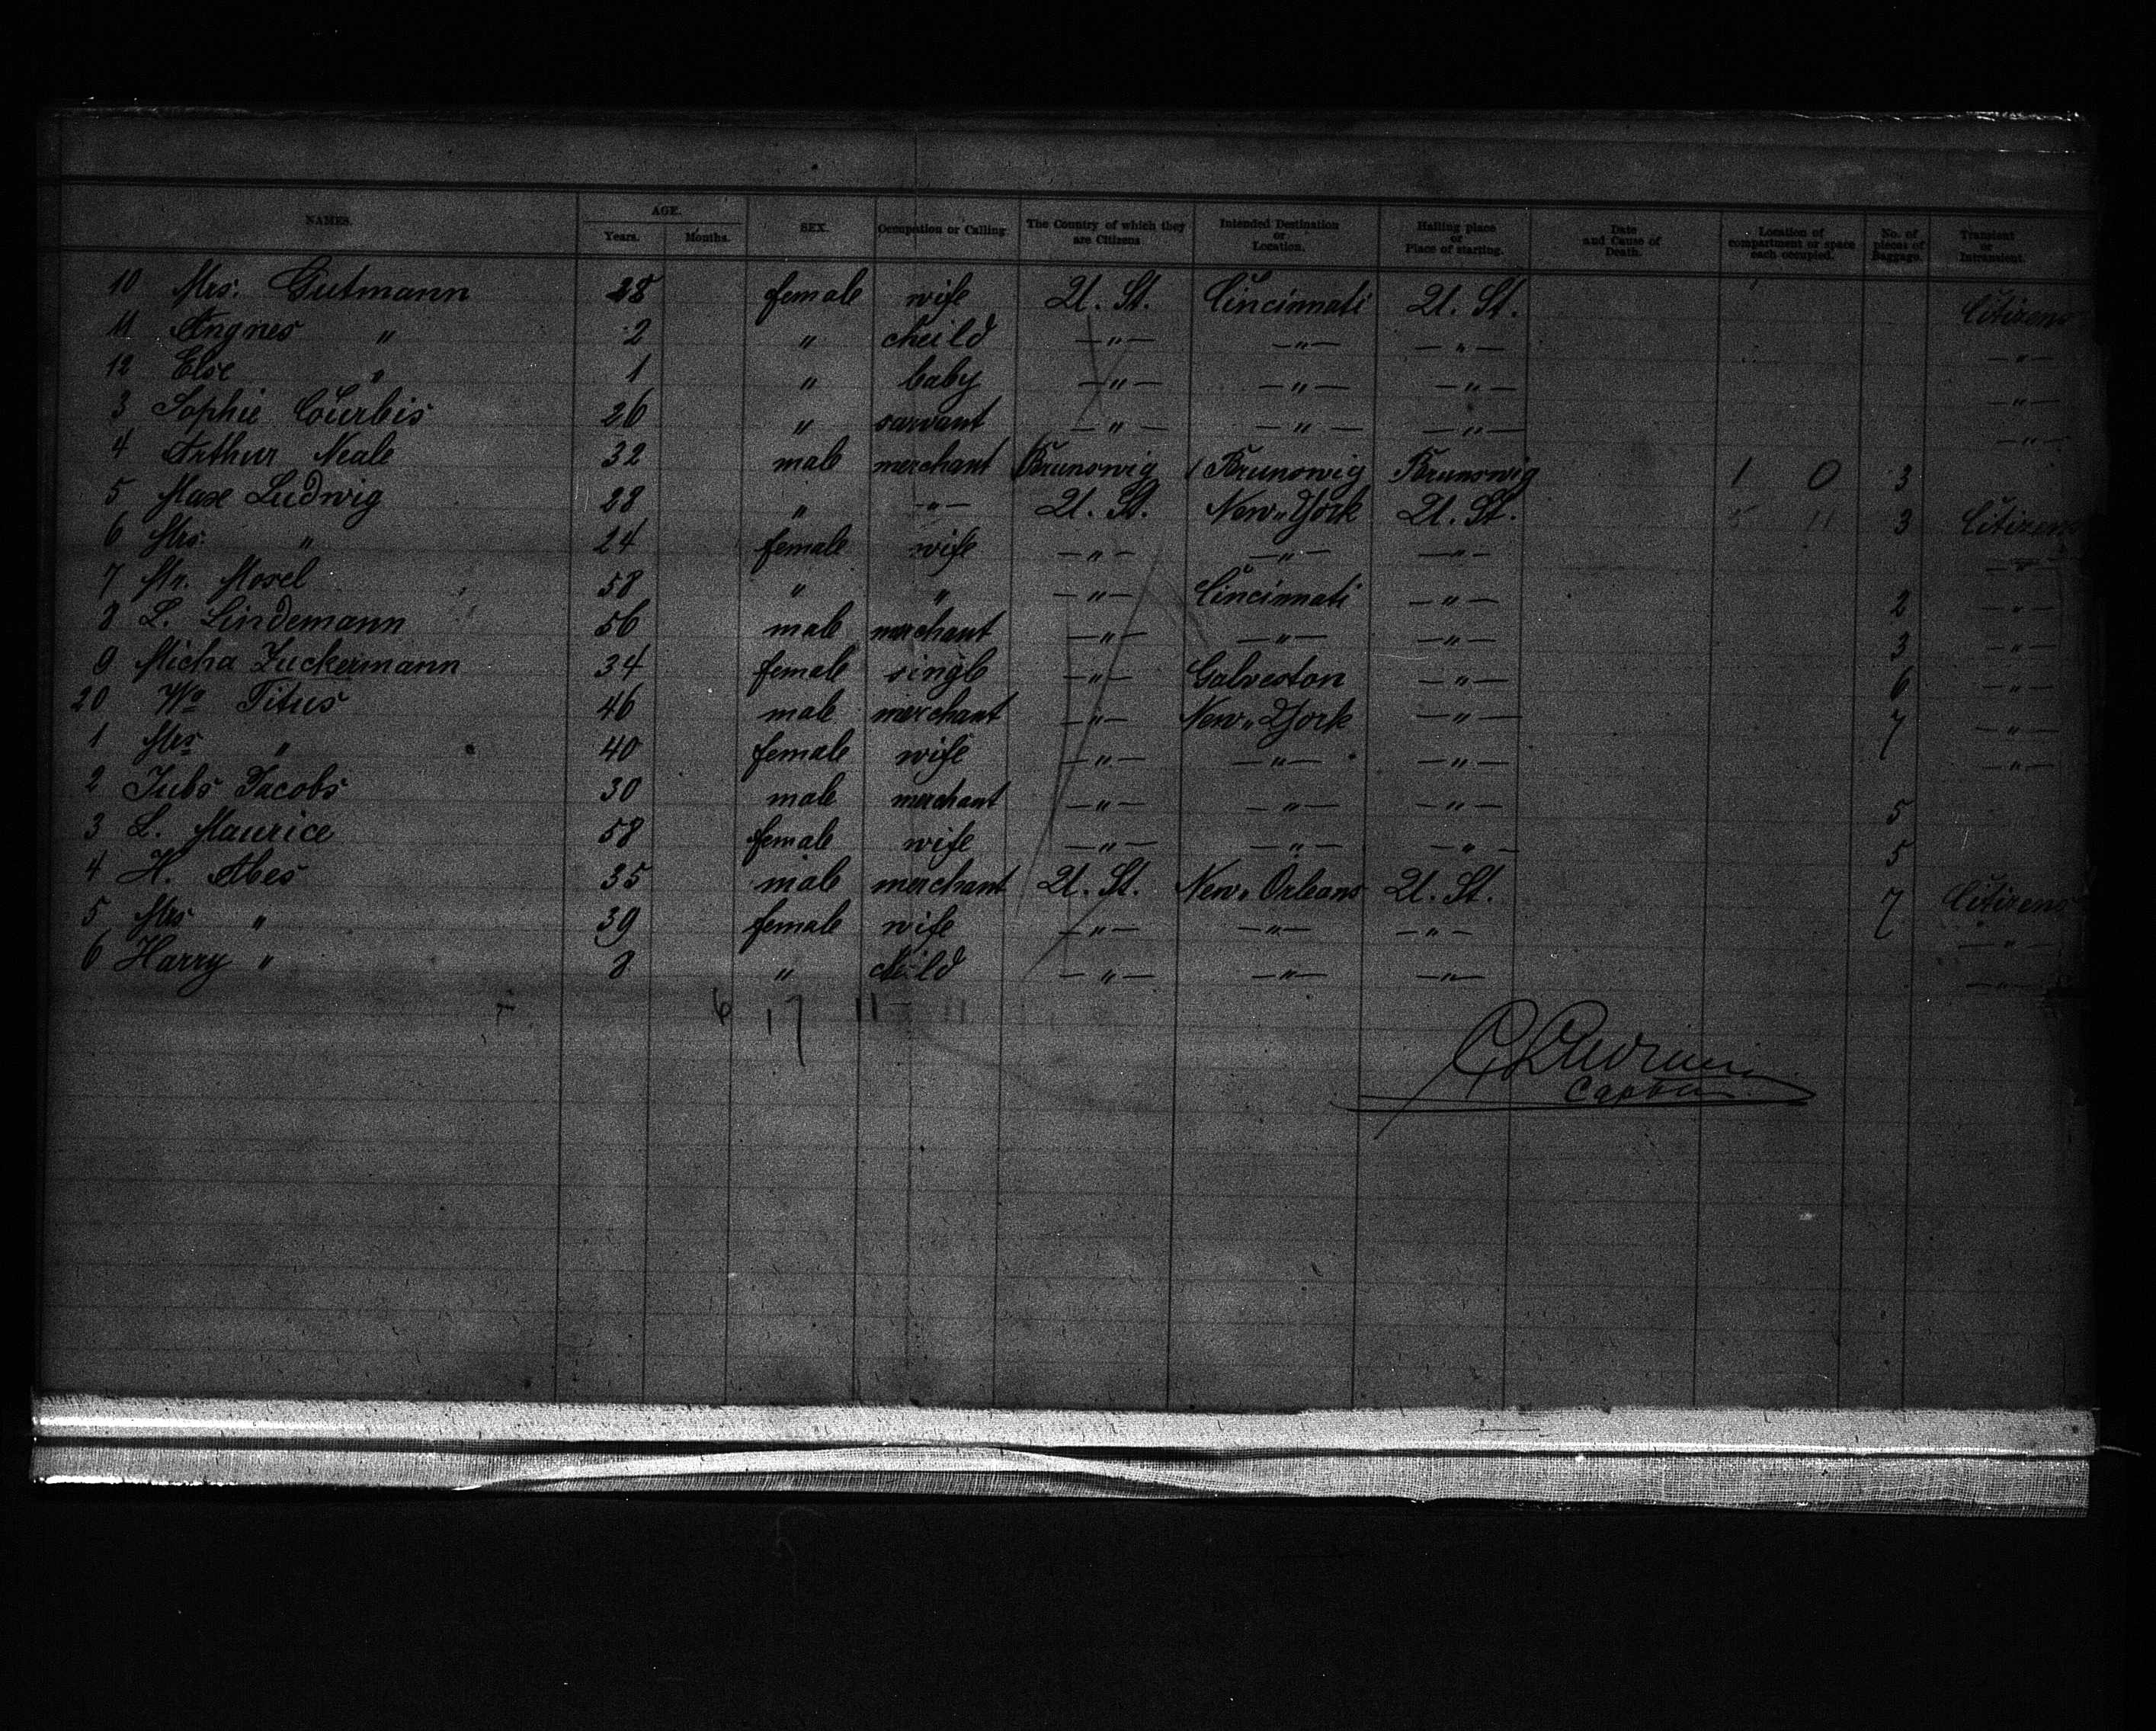 NAMES. AGE. Years. Months. SEX. Occupation or Calling The Country of which they are Citizens Intended Destination or Location. Hailing place or Place of starting. Date and Cause of Death. Location of compartment or space each occupied. No. of pieces of Baggage. Transient or Intransient.
10 Mrs. Gutmann 28 female wife U. St. Cincinnati U. St. Citizens
11 Angnes " 2 " cheild —"— —"— —"— —"—
12 Else " 1 " baby —"— —"— —"— —"—
3 Sophie 26 " sarvant —"— —"— —"— —"—
4 Arthur Neale 32 male merchant Brunswig Brunswig Brunswig 1 0 3
5 Max Ludwig 28 " —"— U. St. New-York U. St. 5 11 3 Citizens
6 Mrs. " 24 female wife —"— —"— —"— —"—
7 Mosel 58 " " —"— Cincinnati —"— 2 —"—
8 L. Lindemann 56 male merchant —"— —"— —"— 3 —"—
9 Micha Zuckermann 34 female single —"— Galveston —"— 6 —"—
20 Wm Titus 46 male merchant —"— New-York —"— 7 —"—
1 Mrs " 40 female wife —"— —"— —"— —"—
2 Jacobs 30 male merchant —"— —"— —"— 5
3 L. Maurice 58 female wife —"— —"— —"— 5
4 H. Abes 35 male merchant U. St. New-Orleans U. St. 7 Citizens
5 Mrs " 39 female wife —"— —"— —"— —"—
6 Harry " 8 " cheild —"— —"— —"— —"—
6 17 11 11